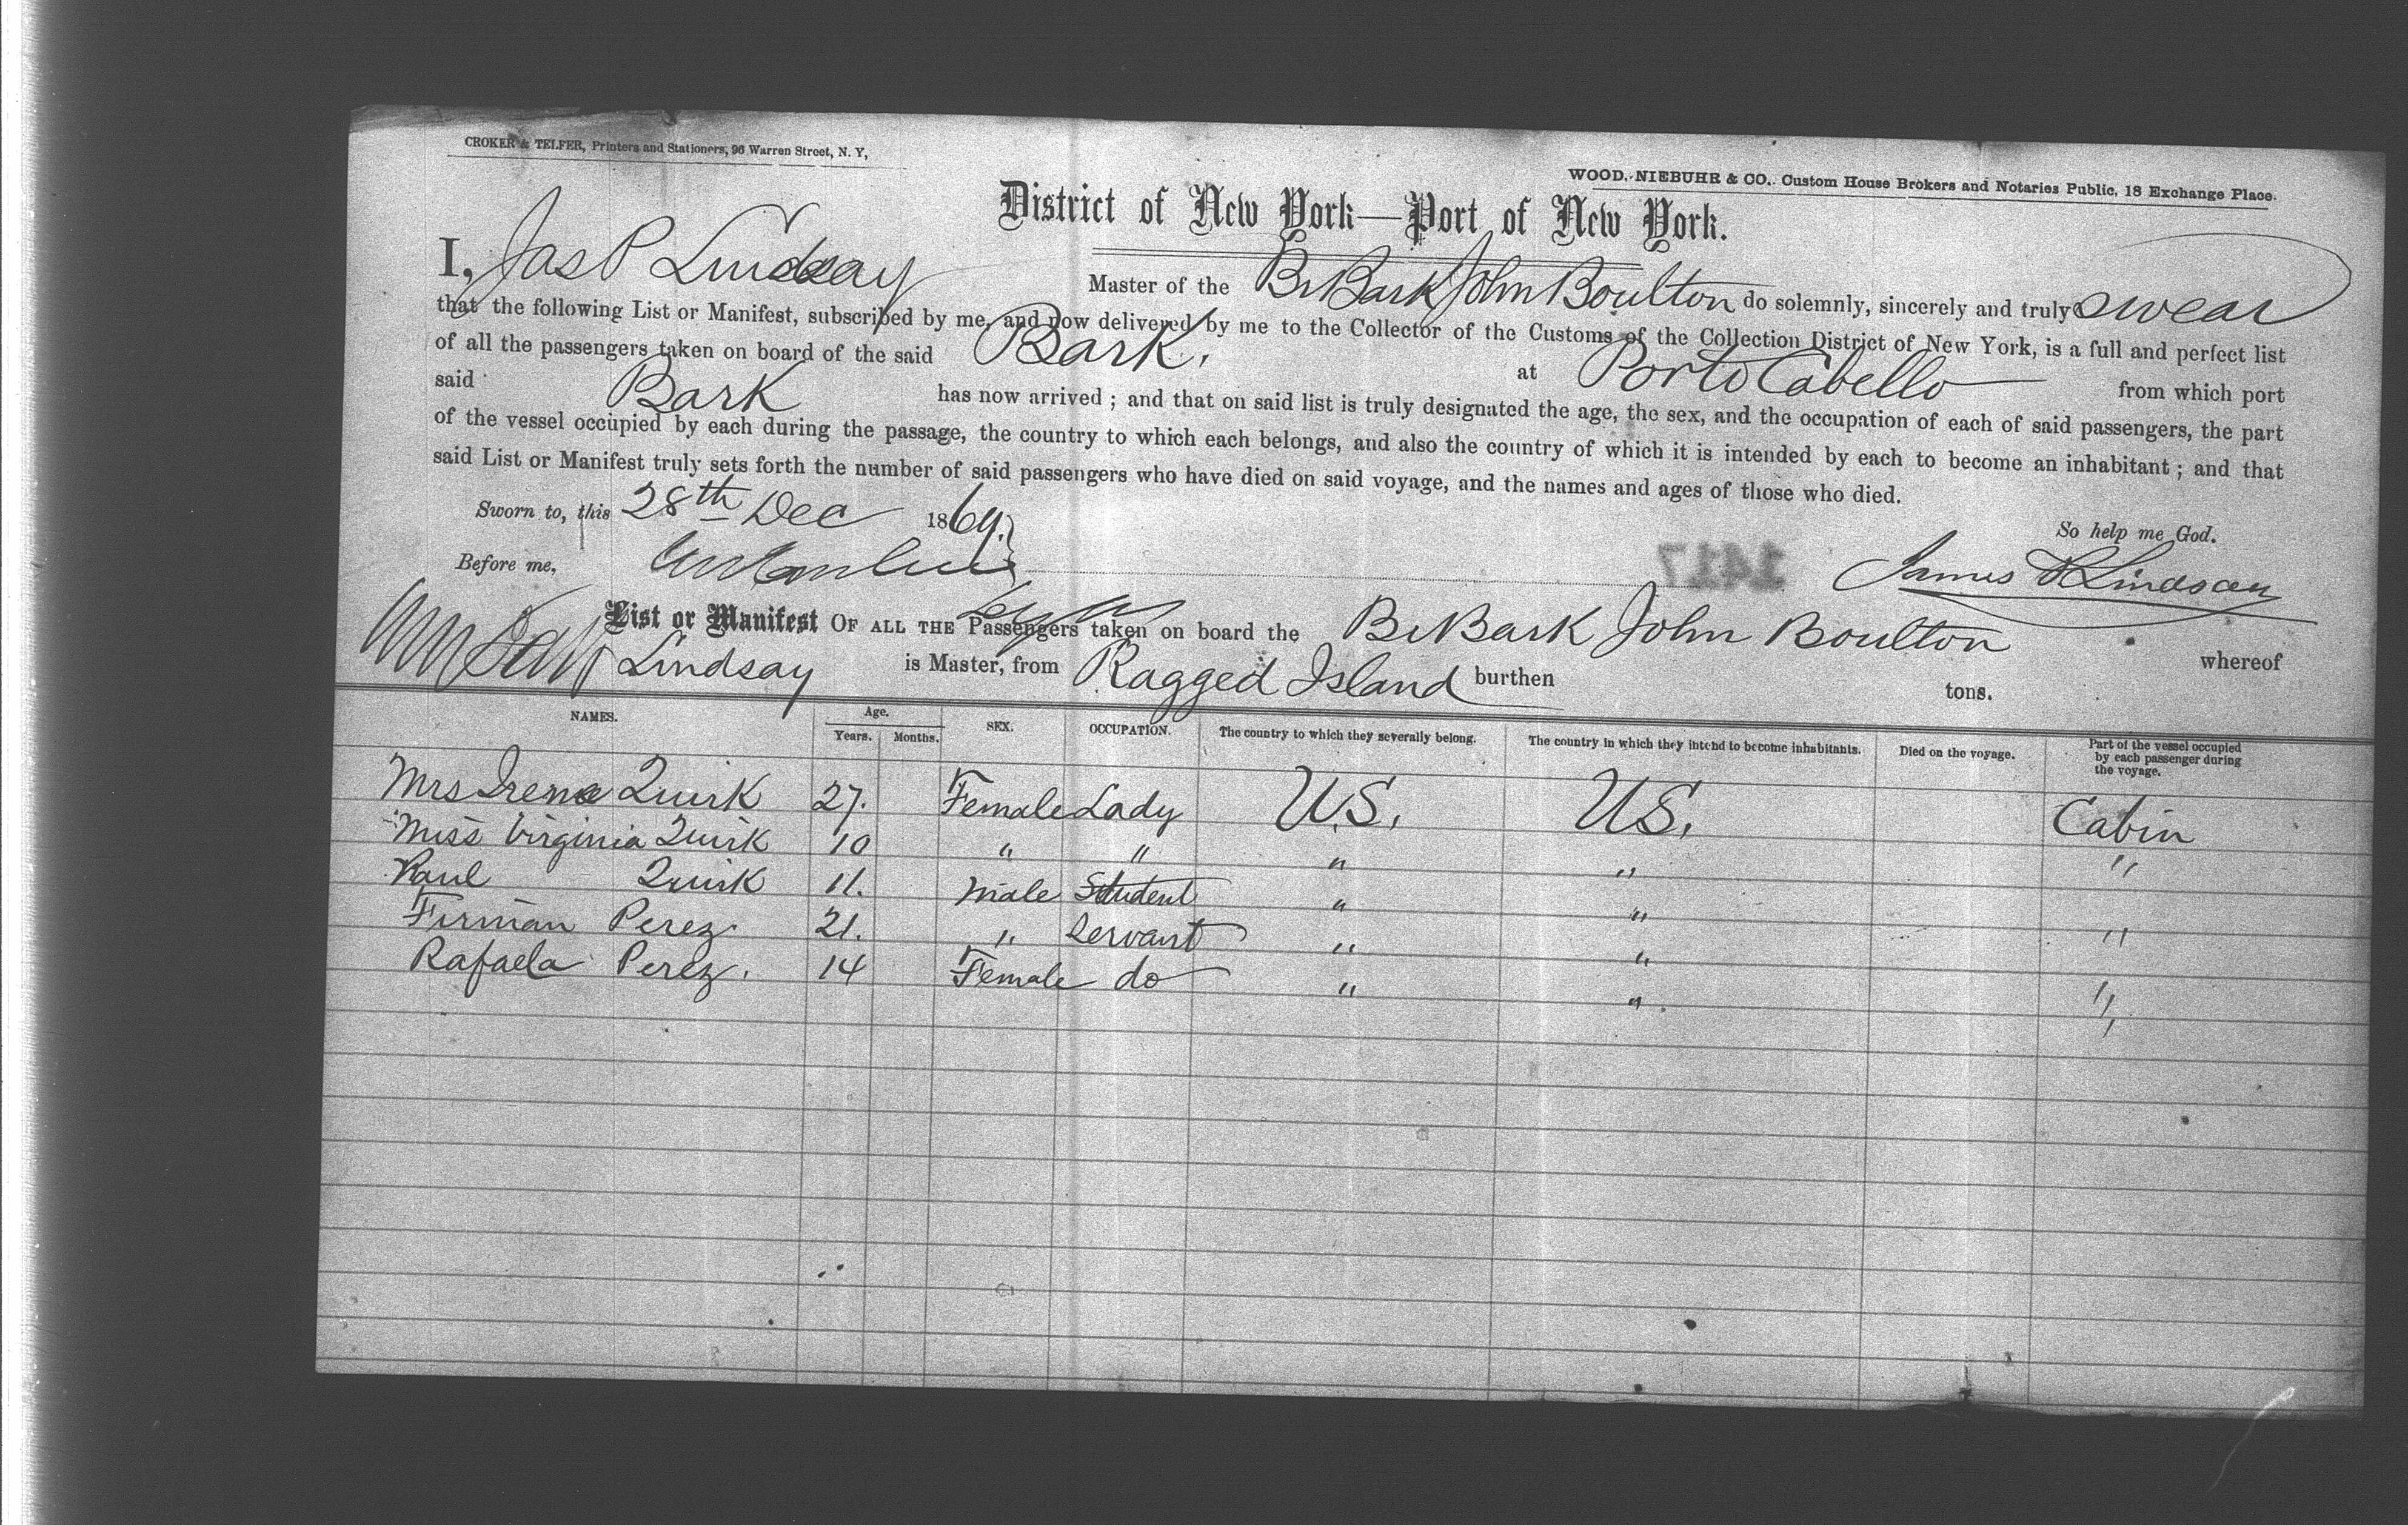 CROKER & TELFER, Printers and Stationers, 96 Warren Street, N. Y,
WOOD, NIEBUHR & CO., Custom House Brokers and Notaries Public, 18 Exchange Place.
District of New York—Port of New York.
I, Jas P Lindsay Master of the Br Bark John Boulton do solemnly, sincerely and truly swear
that the following List or Manifest, subscribed by me, and now delivered by me to the Collector of the Customs of the Collection District of New York, is a full and perfect list
of all the passengers taken on board of the said Bark. at Porto Cabello from which port
said Bark has now arrived ; and that on said list is truly designated the age, the sex, and the occupation of each of said passengers, the part
of the vessel occupied by each during the passage, the country to which each belongs, and also the country of which it is intended by each to become an inhabitant ; and that
said List or Manifest truly sets forth the number of said passengers who have died on said voyage, and the names and ages of those who died.
Sworn to, this 28th Dec 1869.
So help me God.
Before me, James P Lindsay
1417
List or Manifest OF ALL THE Passengers taken on board the Br Bark John Boulton whereof
Lindsay is Master, from Ragged Island burthen tons.
NAMES. Age. Years. Months. SEX. OCCUPATION. The country to which they severally belong. The country in which they intend to become inhabitants. Died on the voyage. Part of the vessel occupied by each passenger during the voyage.
Mrs Irene Quirk 27. Female Lady U.S. US. Cabin
Miss Virginia Quirk 10 " " " " "
Paul Quirk 11. Male Student " "
Firman Perez. 21. " Servant " " "
Rafaela Perez. 14 Female do " " "